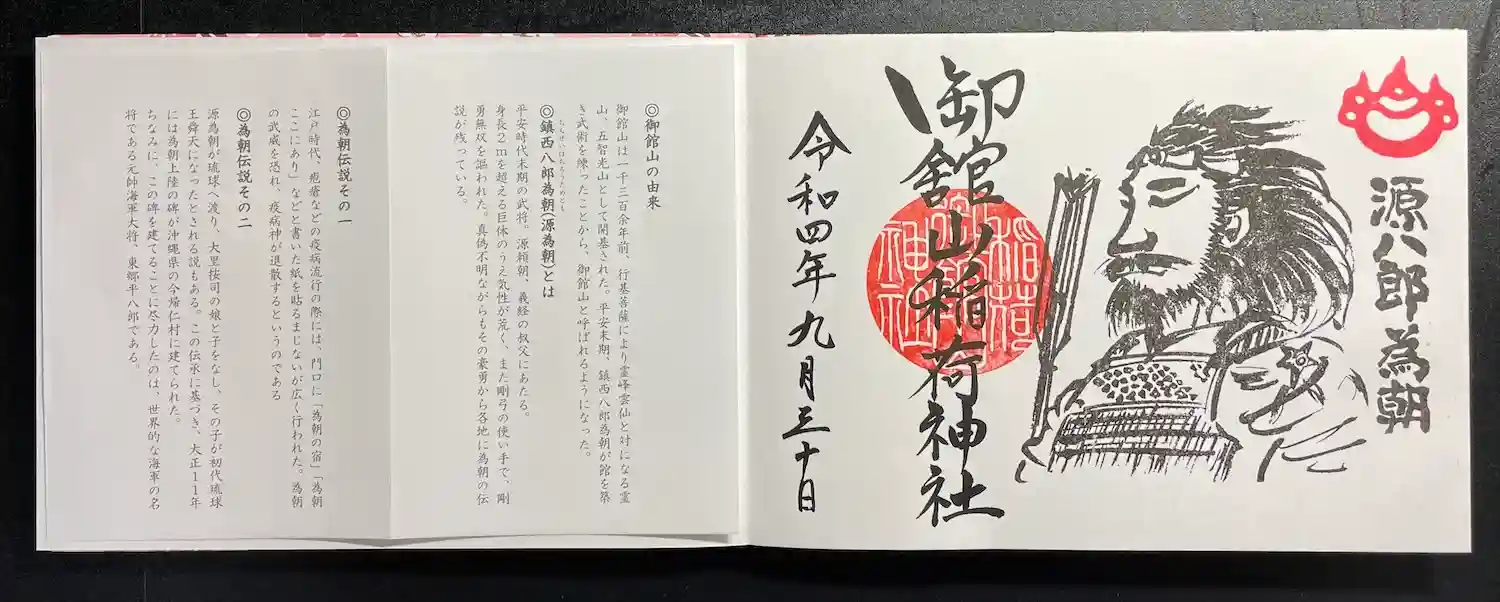 源八郎為朝
御館山稲荷神社
稲荷
御館山
神社
令和四年九月三十日
◎御館山の由来
御館山は一千三百余年前、行基菩薩により霊峰雲仙と対になる霊
山、五智光山として開基された。平安末期、鎮西八郎為朝が館を築
き武術を練ったことから、御館山と呼ばれるようになった。
◎鎮西八郎為朝(源為朝)とは
ちんぜいはちろうためとも
平安時代末期の武将。源頼朝、義経の叔父にあたる。
身長2mを超える巨体のうえ気性が荒く、また剛弓の使い手で、剛
勇無双を謳われた。真偽不明ながらもその豪勇から各地に為朝の伝
説が残っている。
◎為朝伝説その一
江戸時代、疱瘡などの疫病流行の際には、門口に「為朝の宿」「為朝
ここにあり」などと書いた紙を貼るまじないが広く行われた。為朝
の武威を恐れ、疫病神が退散するというのである
◎為朝伝説その二
源為朝が琉球へ渡り、大里按司の娘と子をなし、その子が初代琉球
王舜天になったとされる説もある。この伝承に基づき、大正11年
には為朝上陸の碑が沖縄県の今帰仁村に建てられた。
ちなみに、この碑を建てることに尽力したのは、世界的な海軍の名
将である元帥海軍大将、東郷平八郎である。